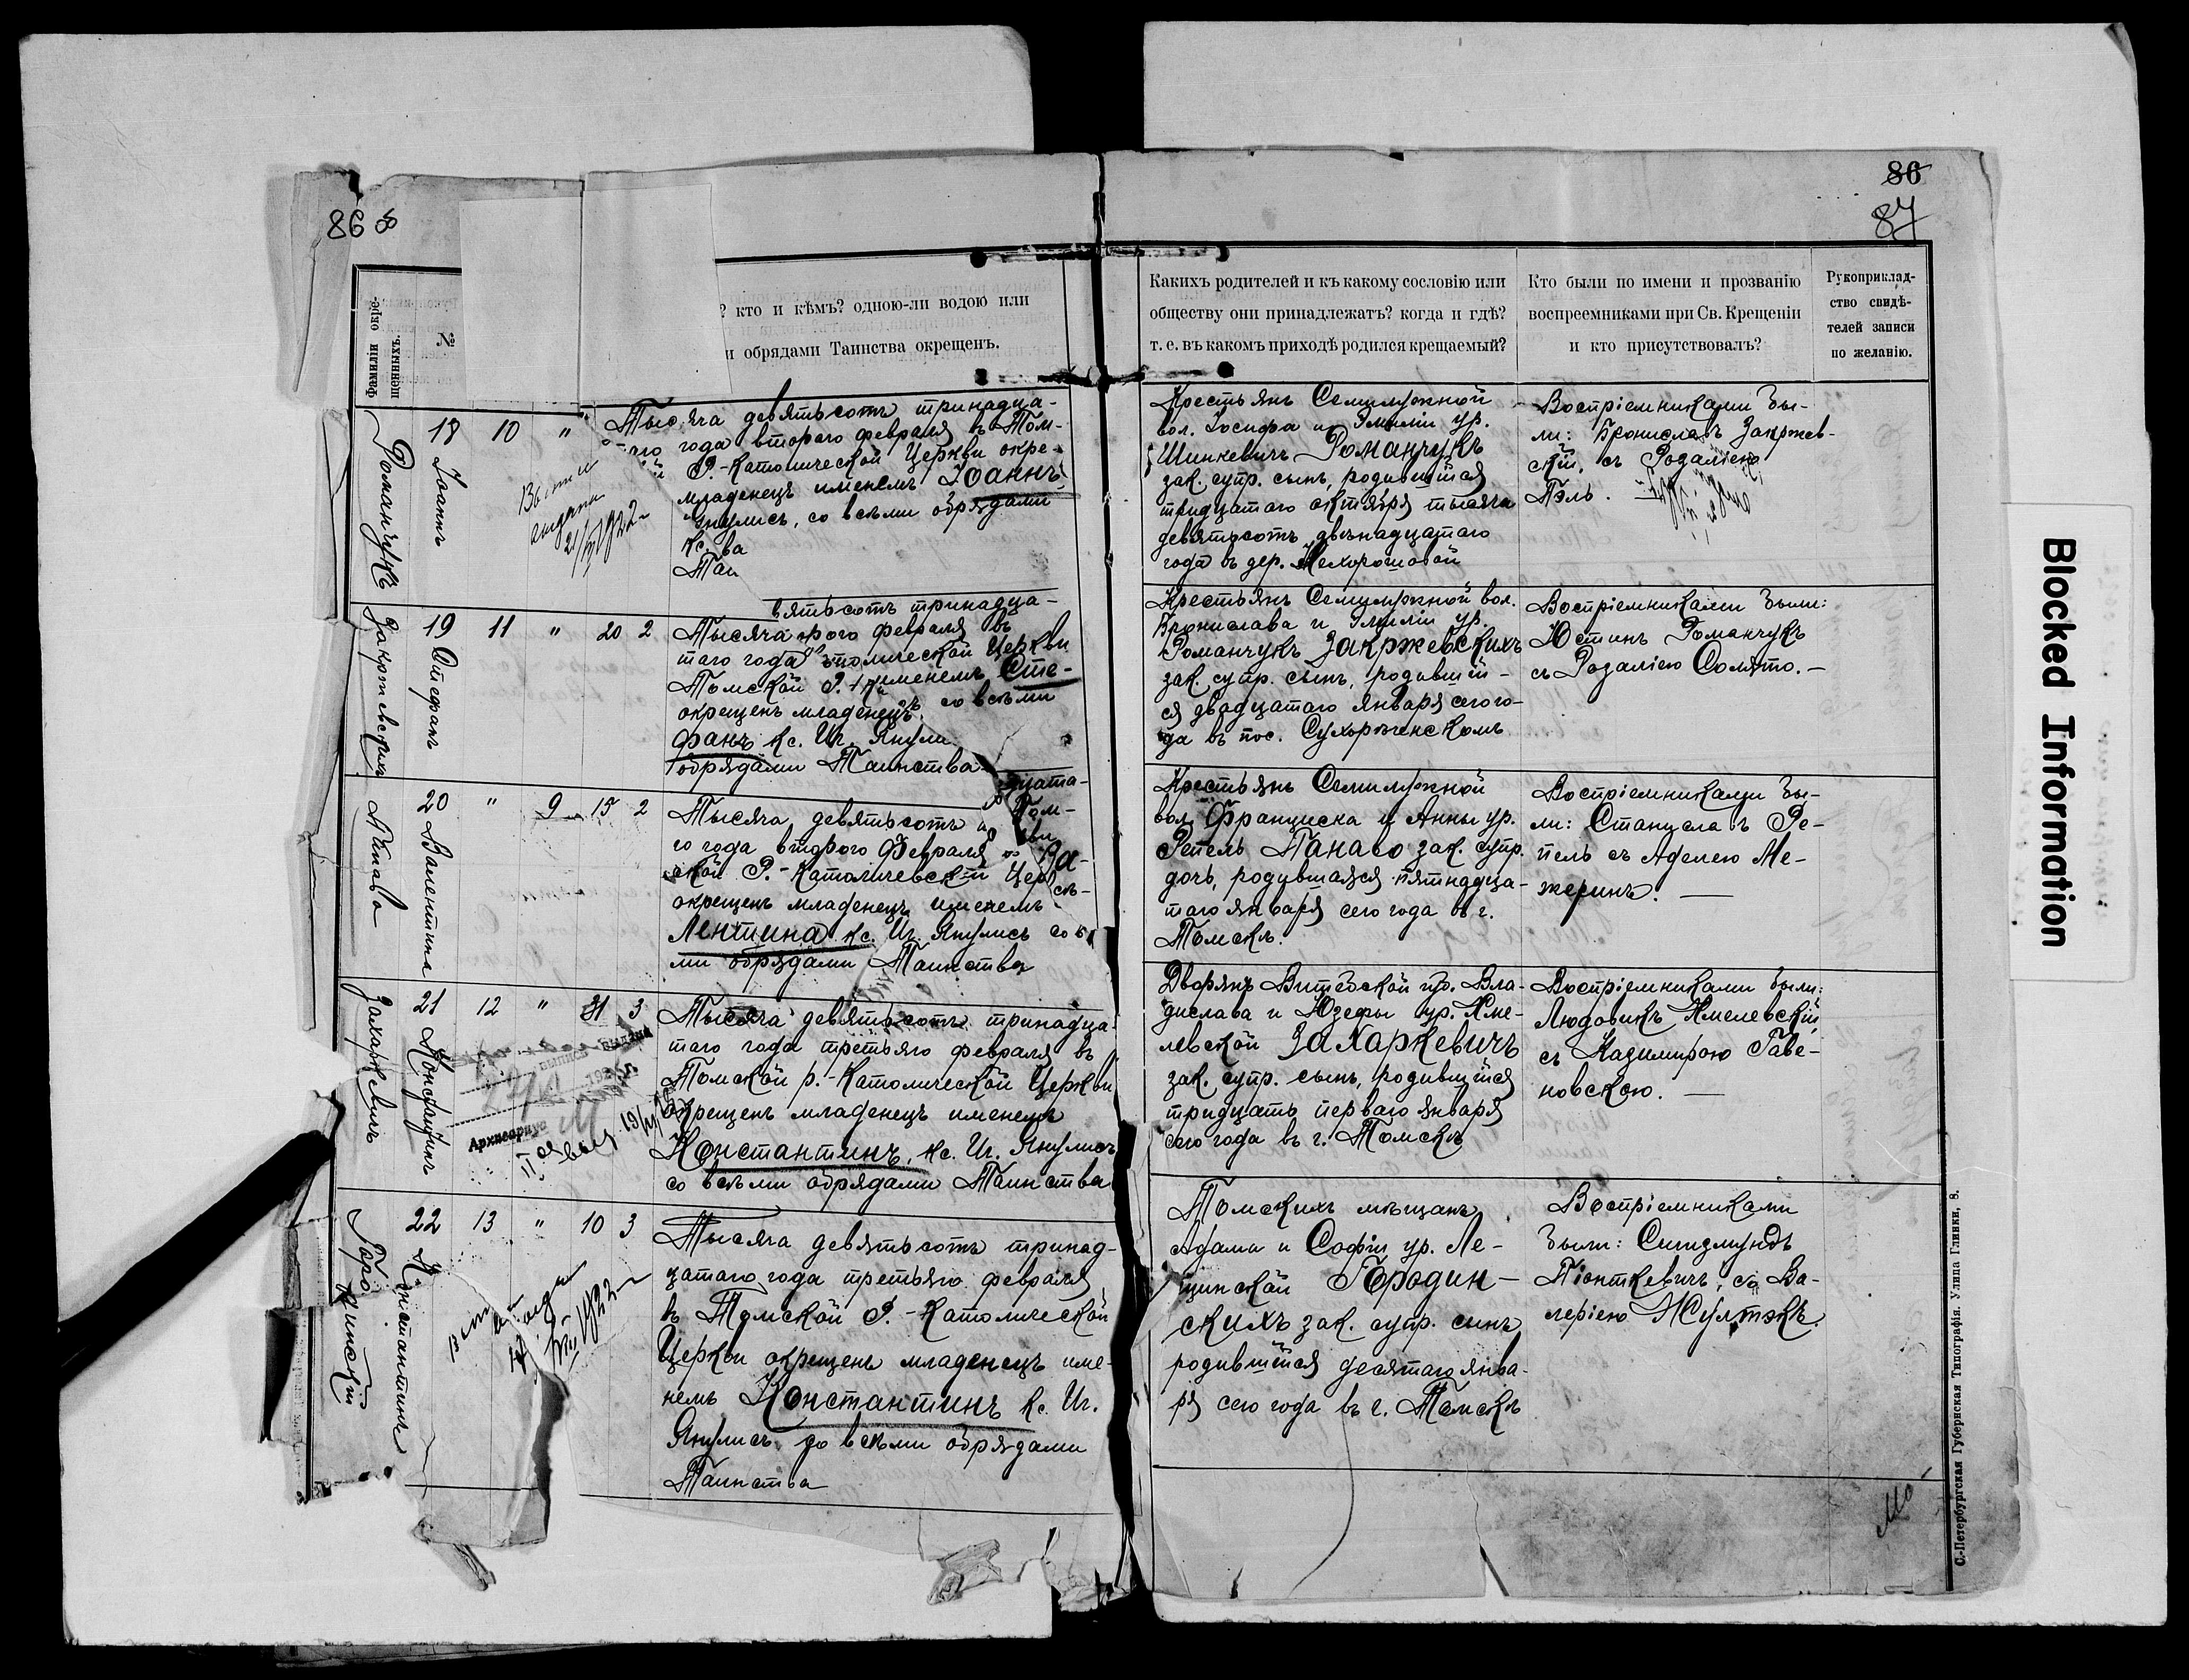 86
87
868
Фамиліи окре-
щенныхъ.
№
? кто и кѣмъ? одною-ли водою или
и обрядами Таинства окрещенъ.
Каких​ъ родителей и къ какому сословію или
обществу они принадлежатъ? когда и гдѣ?
т. е. въ какомъ приходѣ родился крещаемый?
Кто были по имени и прозванію
воспреемниками при Св. Крещеніи
и кто присутствовалъ?
Рукоприклад-
ство свидѣ-
телей записи
по желанію.
Романчукъ
18 10 "
Іоаннъ
21/ 1922
Тысяча девятьсотъ тринадца-
таго года второго февраля въ Том-
Р.-Католической Церкви окре-
младенецъ именемъ Іоаннъ
Янулисъ, со всѣми обрядами
Кс.
Таи
Крестьянъ Семилужной
вол. Іосифа и Эмиліи ур.
Шинкевичъ Романчукъ
зак. супр. сынъ, родившійся
тридцатаго октября тысяча
девятьсотъ двѣнадцатаго
года въ дер. Мехорошовой
Воспріемниками бы-
ли: Брониславъ Закржев-
скій, съ Розаліею
Пэль.
19 11 " 20 2
Стефанъ
вятьсотъ тринадца-
Тысяча рого февраля въ
таго года толической Церкви
Томской Р.-Ка именемъ Сте-
окрещенъ младенецъ со всѣми
фанъ Кс. Иг. Янули
обрядами Таинства
Крестьянъ Семилужной вол.
Бронислава и Эмиліи ур.
Романчукъ Закржевскихъ
зак. супр. сынъ, родившій-
ся двадцатаго января сего го-
да въ пос. Сухореченскомъ
Воспріемниками были:
Юстинъ Романчукъ
съ Розаліею Солято. —
20 " 9 15 2
Валентина
Тысяча девятьсотъ цата-
го года второго Февраля Том-
ской Р.-Католической Церкви
окрещенъ младенецъ именемъ Ва-
лентина Кс. Иг. Янулисъ со всѣ-
ми обрядами Таинства
Крестьянъ Семилужной
вол. Франциска и Анны ур.
Репель Панаво зак. супр.
дочь, родившаяся пятнадца-
таго января сего года въ г.
Томскѣ.
Воспріемниками бы-
ли: Станиславъ Ре-
пель съ Аделею Ме-
жеринъ. —
Захаркевичъ
21 12 " 31 3
Константинъ
Архивариус
Тысяча девятьсотъ тринадца-
таго года третьяго февраля въ
Томской р.-Католической Церкви
окрещенъ младенецъ именемъ
Константинъ, Кс. Иг. Янулисъ
со всѣми обрядами Таинства
Дворянъ Витебской губ. Вла-
дислава и Юзефы ур. Хме-
левской Захаркевичъ
зак. супр. сынъ, родившійся
тридцать перваго января
сего года въ г. Томскѣ
Воспріемниками были:
Людовикъ Хмелевскій,
съ Казимирою Габе-
новскою. —
22 13 " 10 3
Константинъ
1922
Тысяча девятьсотъ тринад-
цатаго года третьяго февраля
въ Томской Р.-Католической
Церкви окрещенъ младенецъ име-
немъ Константинъ Кс. Иг.
Янулисъ со всѣми обрядами
Таинства
Томскихъ мѣщанъ
Адама и Софіи ур. Ле-
щинской Городин-
скихъ зак. супр. сынъ
родившійся десятаго янва-
ря сего года въ г. Томскѣ
Воспріемниками
были: Сигизмундъ
Піонткевичъ, съ Ва-
леріею Жултэкъ.
С.-Петербургская Губернская Типографія. Улица Глинки, 8.
Blocked Information